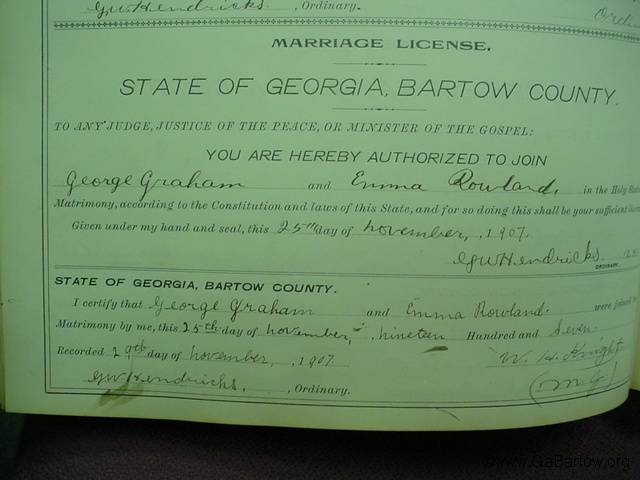 GW Hendricks. , Ordinary.
MARRIAGE LICENSE.
STATE OF GEORGIA, BARTOW COUNTY.
TO ANY JUDGE, JUSTICE OF THE PEACE, OR MINISTER OF THE GOSPEL:
YOU ARE HEREBY AUTHORIZED TO JOIN
George Graham and Emma Rowland, in the Holy
Matrimony, according to the Constitution and laws of this State, and for so doing this shall be your sufficient
Given under my hand and seal, this 25th day of november, , 1907.
GW Hendricks.
ORDINARY.
STATE OF GEORGIA, BARTOW COUNTY.
I certify that George Graham and Emma Rowland. were joined
Matrimony by me, this 25th day of november, nineteen Hundred and Seven
Recorded 29th day of november, , 1907. W. H. Knight
GW Hendricks. , Ordinary. (M.G.
www.GaBartow.org